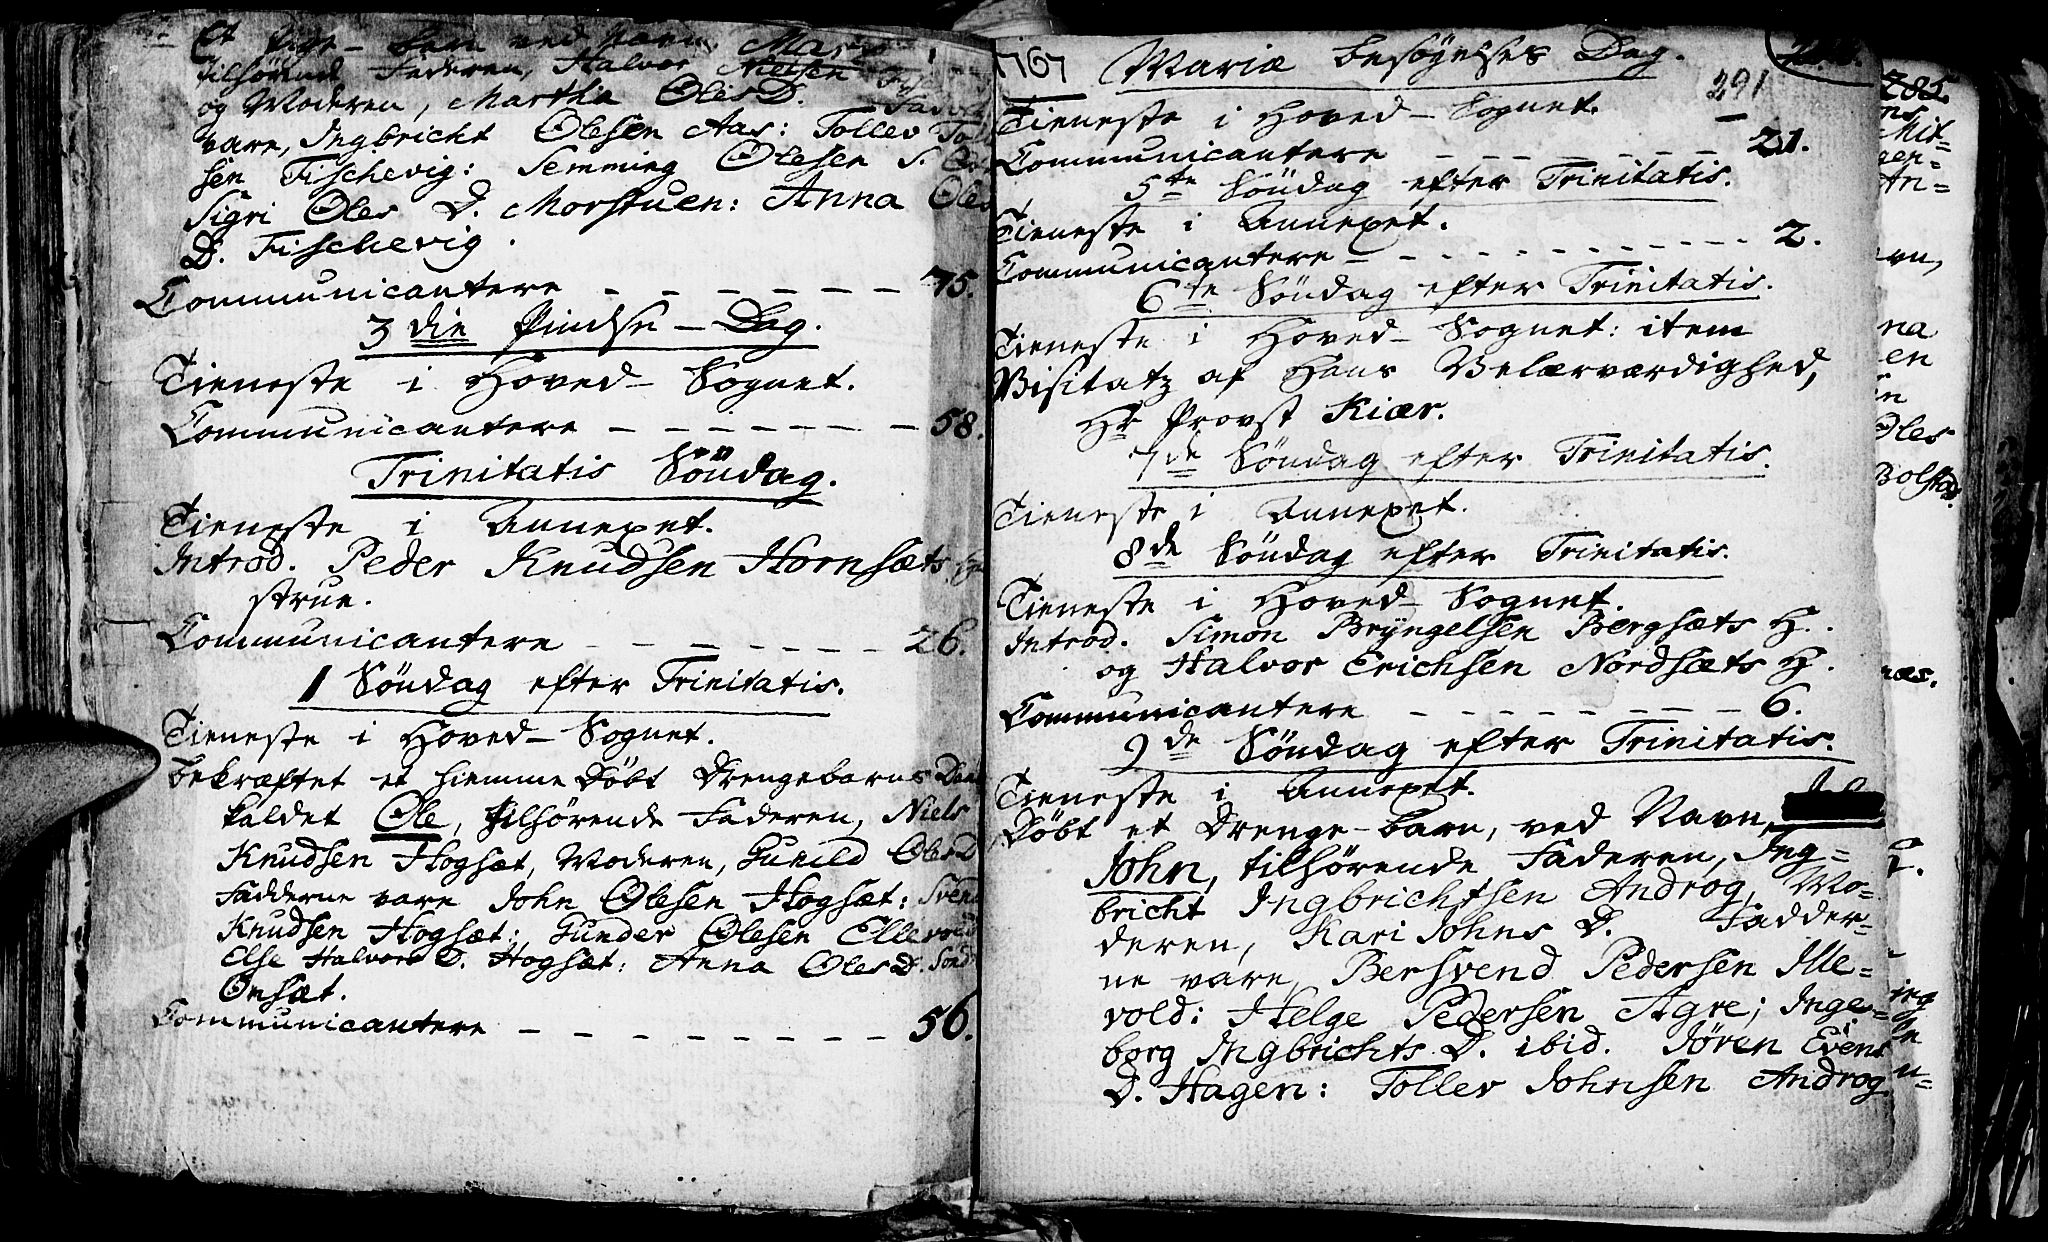 Et Pige-barn ved Navn, Mar
tilhørende Faderen, Halvor Nielsen
og Moderen, Martha OlesD.
vare, Ingbricht Olesen Aas: Tollev
sen Fischevig: Semming Olesen S.
Sigri Oles D. Morstuen: Anna Oles
D. Fischevig.
Communicantere - - - - - - - 75.
3 die Pindse-Dag.
Tieneste i Hoved-Sognet.
Communicantere - - - - - - - 58.
Trinitatis Söndag.
Tieneste i Annexet.
Introd. Peder Knudsen Hornsæts
strue.
Communicantere - - - - - - - 26.
1 Söndag efter Trinitatis.
Tieneste i Hoved-Sognet.
bekræftet et hiemme Döbt Drengebarns
kaldet Ole, tilhørende Faderen, Niels
Knudsen Hogsæt, Moderen, Gunild OlesD
Fadderne vare John Olesen Hogsæt: Svend
Knudsen Hogsæt: Gunder Olesen Ellevold
Else Halvors D. Hogsæt: Anna OlesD.
Onsæt.
Communicantere - - - - - - - 56.
1767 Mariæ besøgelses Dag.
291
Tieneste i Hoved-Sognet.
Communicantere - - - - - - - 21.
5te Söndag efter Trinitatis.
Tieneste i Annexet.
Communicantere - - - - - - - 2.
6te Söndag efter Trinitatis.
Tieneste i Hoved-Sognet: item
Visitatz af Hans Velærværdighed,
Hr Provst Kiær.
7de Söndag efter Trinitatis.
Tieneste i Annexet.
8de Söndag efter Trinitatis.
Tieneste i Hoved-Sognet.
Introd. Simon Bryngelsen Bergsæts H.
og Halvor Erichsen Nordsæts H.
Communicantere - - - - - - - 6.
9de Söndag efter Trinitatis.
Tieneste i Annexet.
Döbt et Drenge-barn, ved Navn,
John, tilhørende Faderen, Ing=
bricht Ingbrichtsen Androg, Mo=
deren, Kari Johns D. Fadder=
ne vare, Bersvend Pedersen Ille=
vold: Helge Pedersen Agre; Inge=
borg Ingbrichts D. ibid. Jøren Evens
D. Hagen: Tollev Johnsen Androg
285